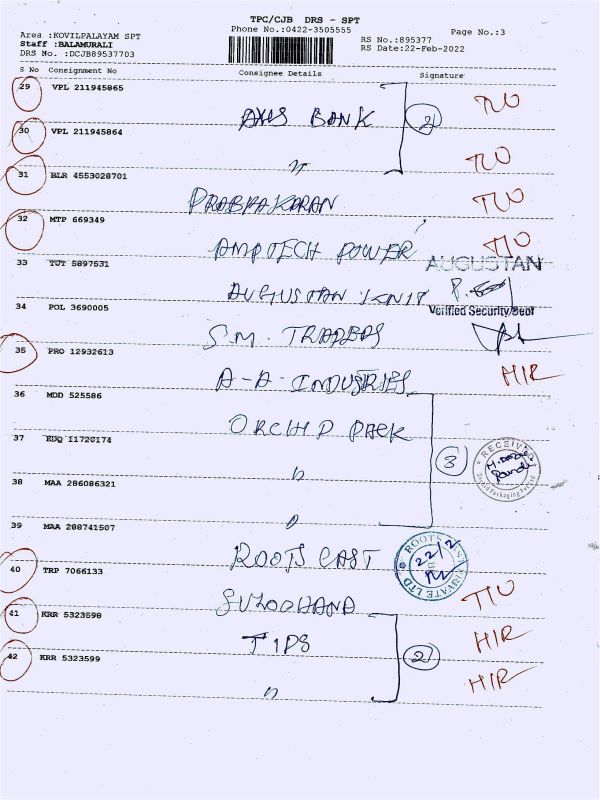 TPC/CJB DRS - SPT
Area :KOVILPALAYAM SPT Phone No.:0422-3505555 Page No.:3
Staff :BALAMURALI RS No.:895377
DRS No. :DCJB89537703 RS Date:22-Feb-2022
S No Consignment No Consignee Details Signature
29 VPL 211945865 AXIS BANK 2 T/O
30 VPL 211945864 " T/O
31 BLR 4553028701 PRABHAKARAN T/O
32 MTP 669349 AMPTECH POWER T/O
33 TUT 5897531 AUGUSTAN KNIT AUGUSTAN
Verified Security Dept
34 POL 3690005 S.M. TRADERS
35 PRO 12932613 A-A-INDUSTRIES H/R
36 MDD 525586 ORCHID PACK
37 EDQ 11720174 " 3 RECEIVED
38 MAA 286086321 "
39 MAA 288741507 ROOTS CAST ROOTS CAST PRIVATE LTD 22/2
40 TRP 7066133 SULOCHANA T/O
41 KRR 5323598 TIPS 2 H/R
42 KRR 5323599 " H/R